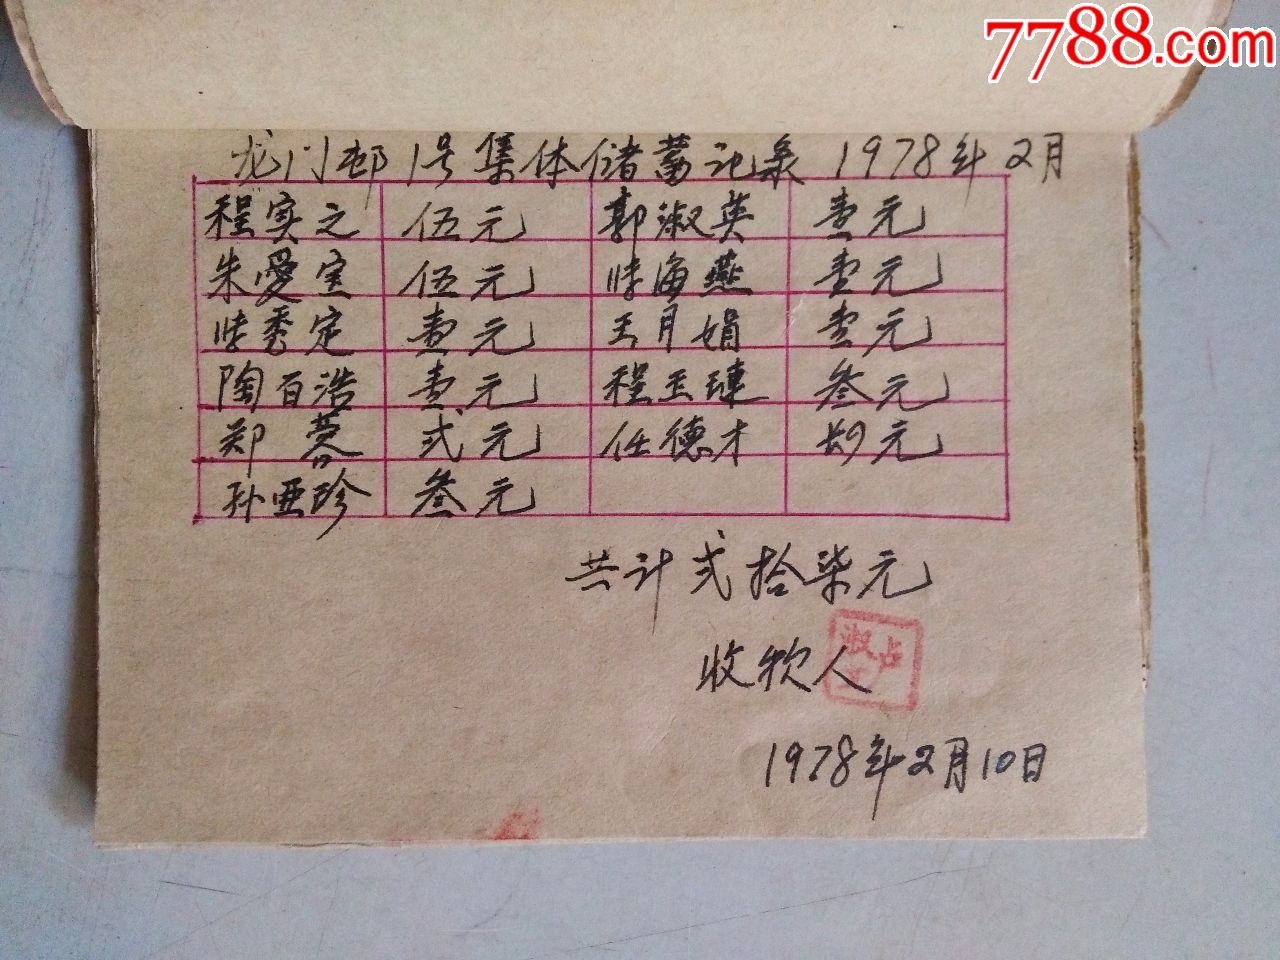 7788.com
龙门邨1号集体储蓄记录 1978年2月
程实之 伍元 郭淑英 壹元
朱愛宝 伍元 张海燕 壹元
张秀定 壹元 王月娟 壹元
陶百浩 壹元 程玉琏 叁元
郑蓉 弍元 任德才 肆元
孙亚珍 叁元
共计弍拾柒元
收款人
1978年2月10日